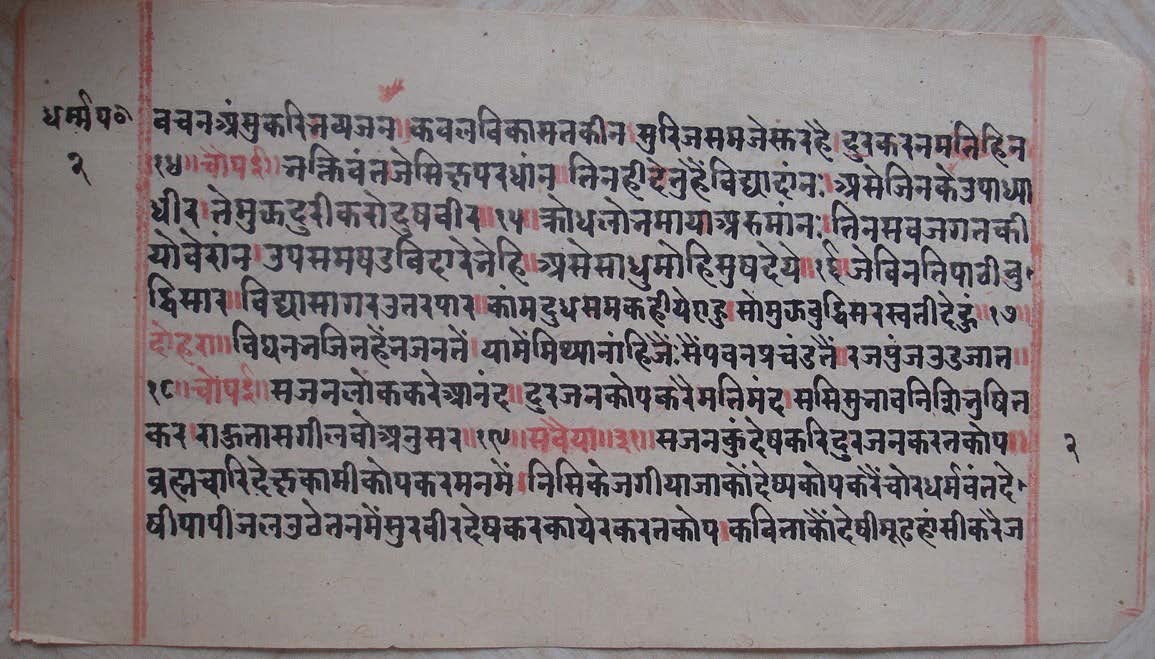 धर्म्मप०
२
वचनअंसुकरिनव्यजन॥कवलविकासनकीन।सुरिजसमजेस्तरहै।दुरकरनमतिहिन
१४॥चौपई॥नक्तिवंतजेसिद्धपरधांन॥तिनहीहेतुहैंविद्यादांन:।असेजिनकेउपाध्या
धीर।तेमुऊदुरीकरोदुषवीर॥१५॥क्रोधलोनमायाअरुमांन:।तिनसवजगतकी
योवेरांन।उपसमषडविहारेनेहि॥असेसाधुमोहिसुषदेये॥१६॥जेविनतिपावीबु
द्धिसार॥विद्यासागरउतरपार॥कांमदुधसमकहीयेएहु।सोमुऊबुद्धिसरस्वतीदेहुं॥१७॥
दोहरा॥विघनतजिनहैंनजनतैं।यामेंमिथ्यानांहिजैं:मैंपवनप्रचंडतैं।रजपुंजउडजात॥
१८॥चौपई॥सजनलोककरेआनंद॥दुरजनकोपकरैमतिमंद।ससिसुनावनिशितुषित
कर।राऊतासगीलवोअनुसर॥१९॥सवैया॥३१॥सजनकुंदेषकरिदुरजनकरतकोप॥
२
ब्रह्मचारिदेरूकामीकोपकरमनमें।निसिकेजगीयाजाकोंदेष्यकोपकरैंचोरधर्मवंतदे
षीपापीजलउठेतनमेंसुरवीरदेषकरकायेरकरतकोप।कविताकौंदेषीमूढहांसीकरैज